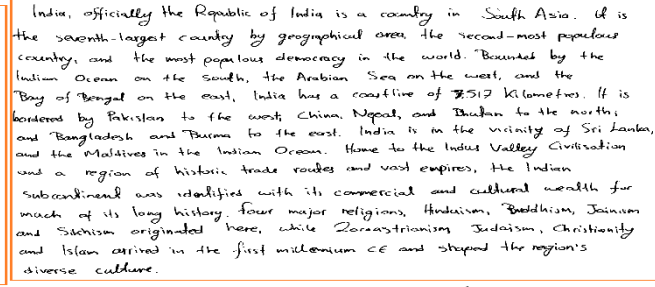 India, officially the Republic of India is a country in South Asia. It is
the seventh-largest country by geographical area, the second-most populous
country, and the most populous democracy in the world. Bounded by the
Indian Ocean on the south, the Arabian Sea on the west, and the
Bay of Bengal on the east, India has a coastline of 7.517 Kilometres. It is
bordered by Pakistan to the west; China, Nepal, and Bhutan to the north;
and Bangladesh and Burma to the east. India is in the vicinity of Sri Lanka,
and the Maldives in the Indian Ocean. Home to the Indus Valley Civilisation
and a region of historic trade routes and vast empires, the Indian
subcontinent was identified with its commercial and cultural wealth for
much of its long history. four major religions, Hinduism, Buddhism, Jainism
and Sikhism originated here, while Zoroastrianism Judaism, Christianity
and Islam arrived in the first millennium CE and shaped the region's
diverse culture.